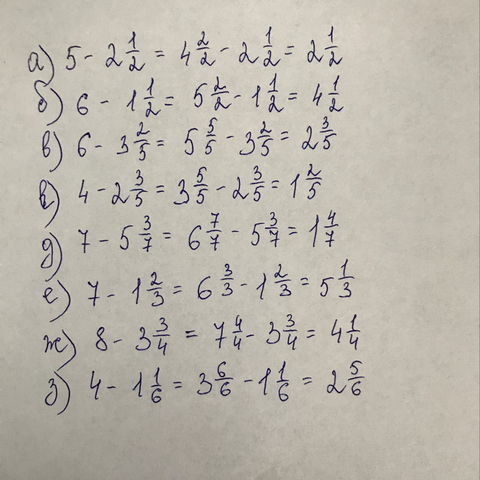 а) 5 - 2 1/2 = 4 2/2 - 2 1/2 = 2 1/2
б) 6 - 1 1/2 = 5 2/2 - 1 1/2 = 4 1/2
в) 6 - 3 2/5 = 5 5/5 - 3 2/5 = 2 3/5
в) 4 - 2 3/5 = 3 5/5 - 2 3/5 = 1 2/5
д) 7 - 5 3/7 = 6 7/7 - 5 3/7 = 1 4/7
е) 7 - 1 2/3 = 6 3/3 - 1 2/3 = 5 1/3
ж) 8 - 3 3/4 = 7 4/4 - 3 3/4 = 4 1/4
з) 4 - 1 1/6 = 3 6/6 - 1 1/6 = 2 5/6